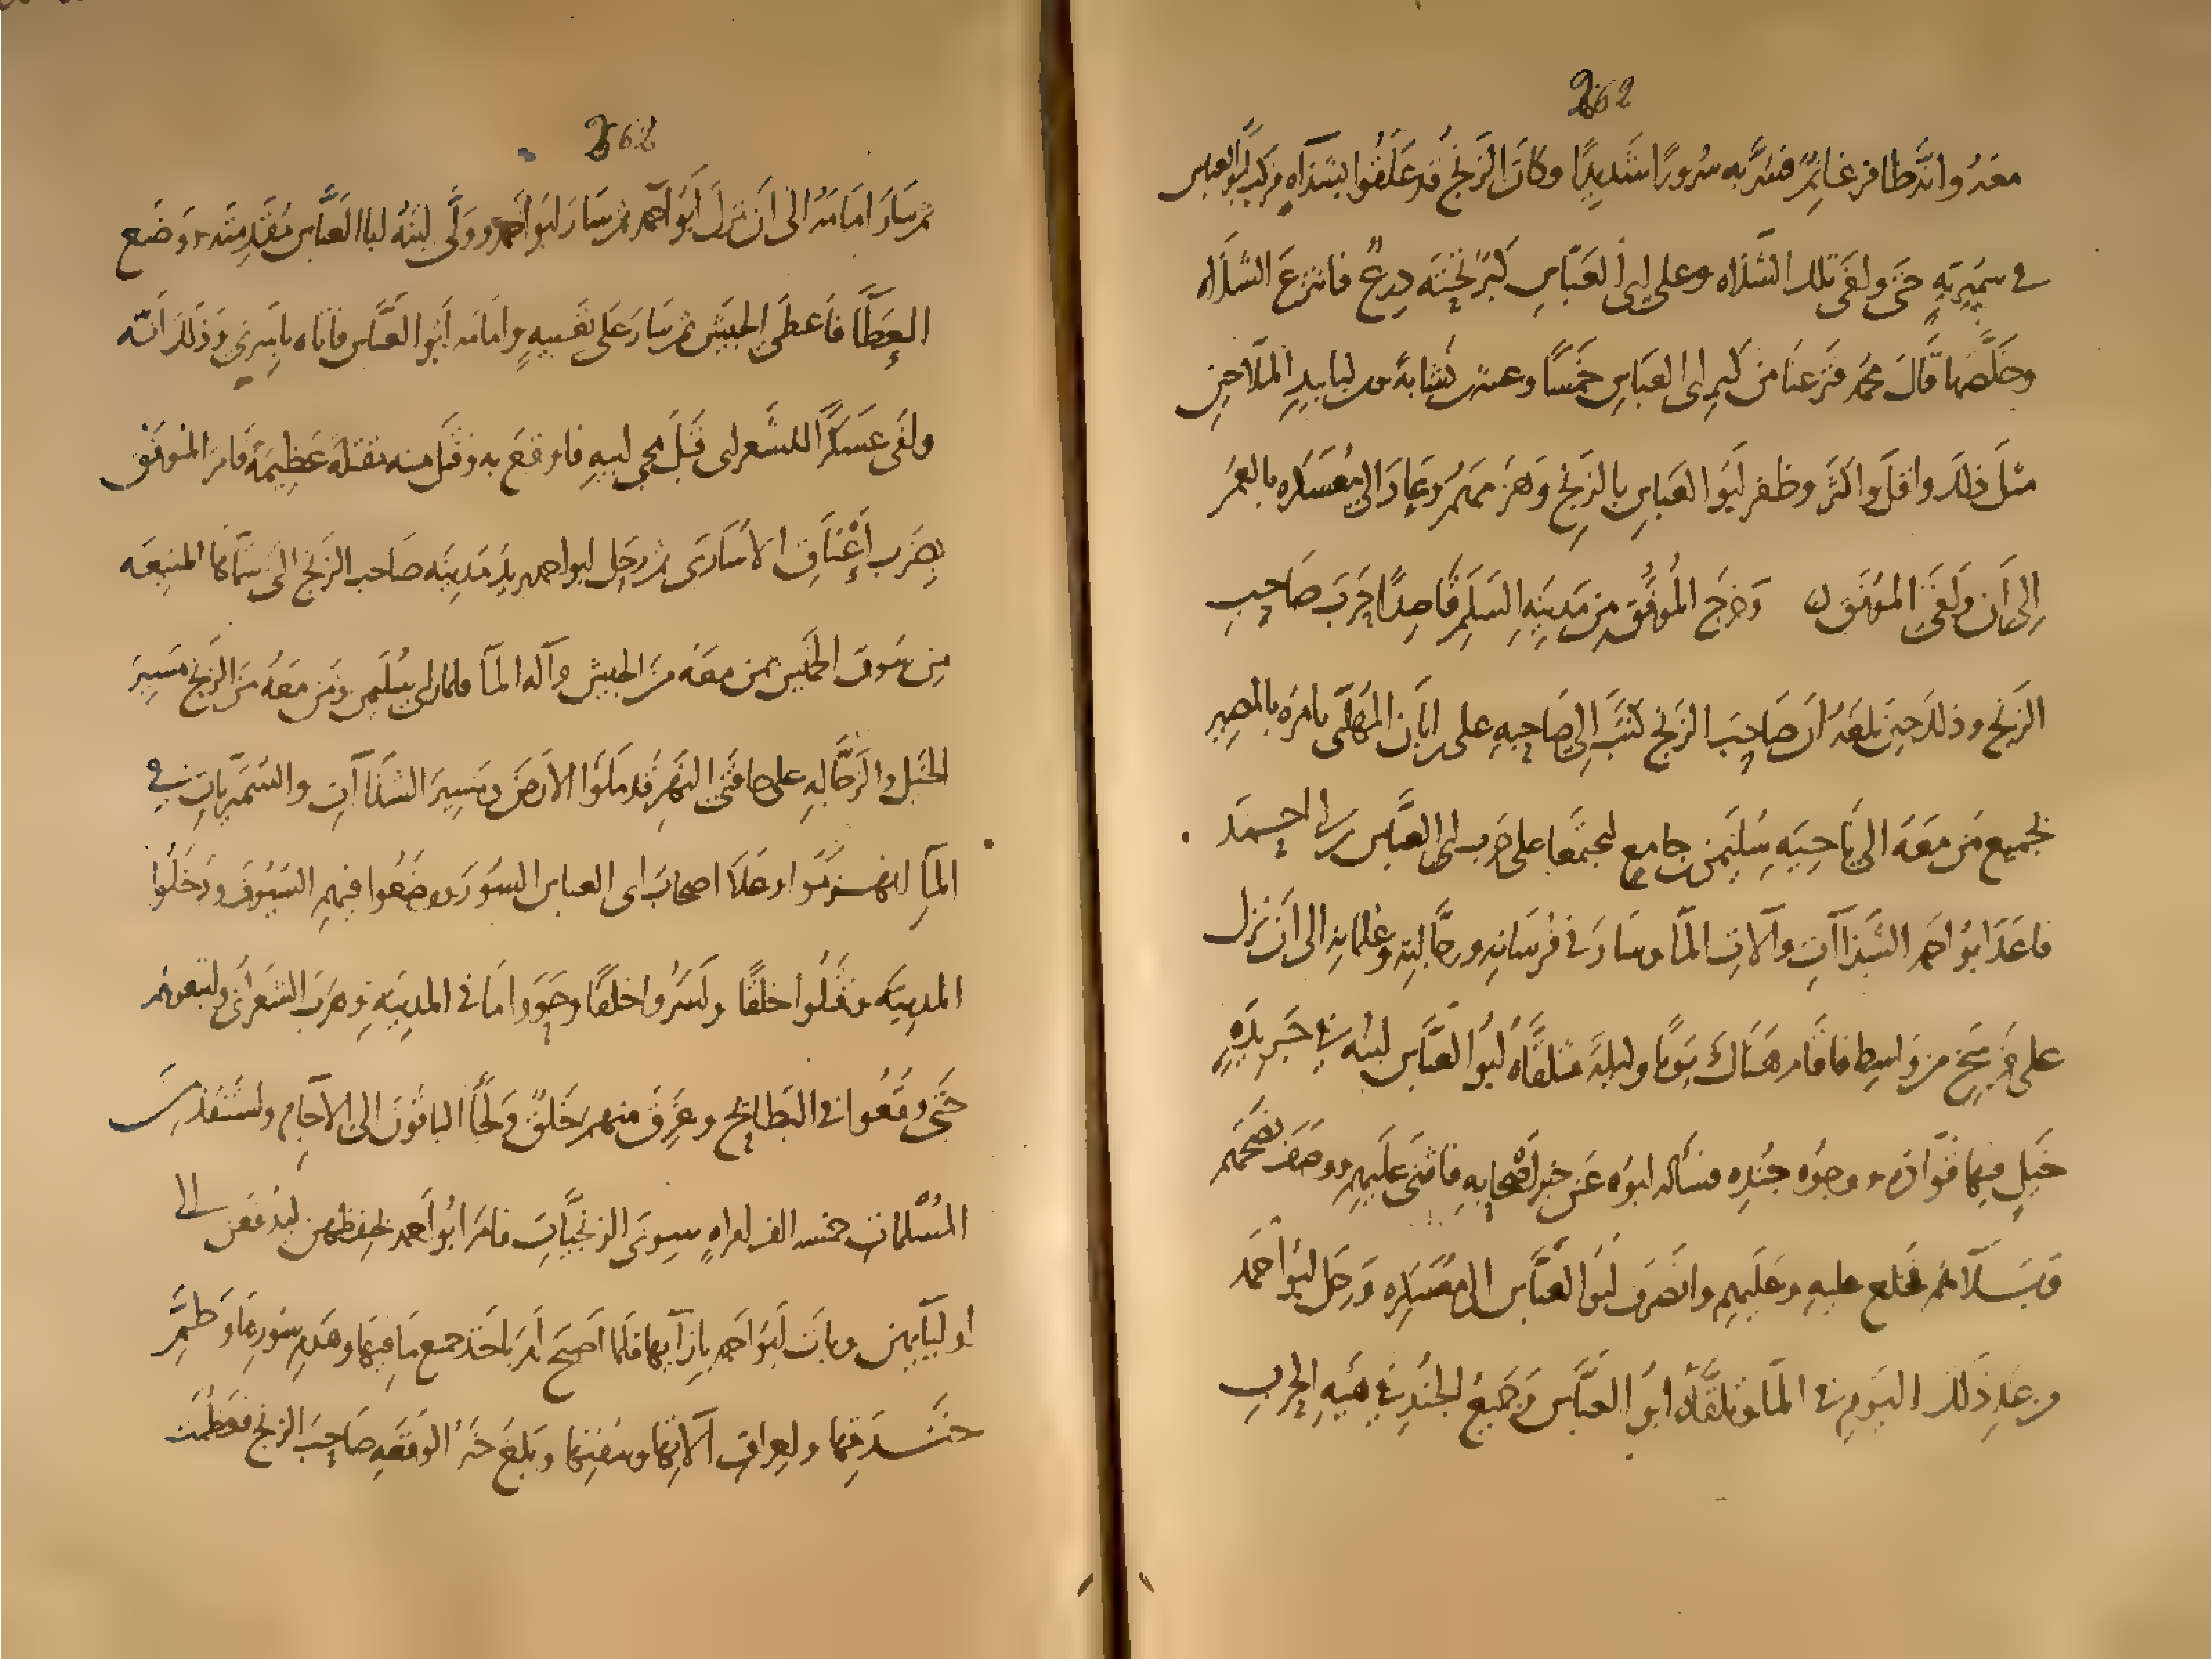 262
معه وانه ظافر غانم فسر به سرورًا شديدًا وكان الزنج قد علقوا بشذاه فركب ابو العباس
في سميريه حتى وافى تلك الشذاه وعلى ابي العباس كبر تحته درع فانتزع الشذاه
وخلصها قال محمد فنزعنا من كبر ابى العباس خمسًا وعشرين نشابة ومن لبابيد الملاحين
مثل ذلك واقل واكثر وظفر ابو العباس بالزنج وهزمهم وعاد الى معسكره بالعمر
الى ان وافى الموفق وخرج الموفق من مدينه السلم قاصدًا حرب صاحب
الزنج وذلك حين بلغه ان صاحب الزنج كتب الى صاحبه على بن ابان المهلبي يامره بالمصير
بجميع من معه الى ناحيه سليمن بن جامع ليجتمعا على حرب ابى العباس بن ابى احمد
فاعد ابو احمد الشذاآت وآلات المآ وسار في فرسانه ورجالته وغلمانه الى ان نزل
على فرسخ من واسط فاقام هناك يومًا وليلة فتلقاه ابو العباس ابنه في جريدة
خيل فيها قواده ووجوه جنده فسأله ابوه عن خبر اصحابه فاثنى عليهم ووصف نصحهم
وبسالتهم فخلع عليه وعليهم وانصرف ابو العباس الى معسكره ورحل ابو احمد
من غد ذلك اليوم في المآ وتلقاه ابو العباس وجميع الجند في هيه الحرب
262
ثم سار امامه الى ان نزل ابو احمد ثم سار ابو احمد وولى ابنه ابا العباس مقدمته ووضع
العطآ فاعطى الجيش ثم سار على تعبيه وامامه ابو العباس فاتاه باسرى وذلك انه
وافى عسكرًا للشعرانى قبل مجى ابيه فاوقع به وقتل منه مقتلة عظيمة فامر الموفق
بضرب اعناق الاسارى ثم رحل ابو احمد يريد مدينه صاحب الزنج التى سماها المنيعه
من سوق الخميس بمن معه من الجيش وآله المآ فلما راى سليمن ومن معه من الزنج مسير
الخيل والرجاله على حافتى النهر قد ملوا الارض ومسير الشذاآت والسميريات في
المآ انهزموا وعلا اصحاب ابى العباس السور ووضعوا فيهم السيوف ودخلوا
المدينه وقتلوا خلقًا واسروا خلقًا وحووا ما في المدينة وهرب الشعرانى واتبعوهم
حتى وقعوا في البطايح وغرق منهم خلق ولجأ الباقون الى الآجام واستنقذ من
المسلمات خمسه الف امراه سوى الزنجيات فامر ابو احمد بحفظهن ليدفعن الى
اوليآيهن وبات ابو احمد بازآيها فلما اصبح امر باخذ جميع ما فيها وهدم سورها وطم
خندقها واحراق آلاتها وسفنها وبلغ خبر الوقعه صاحب الزنج فعظمت